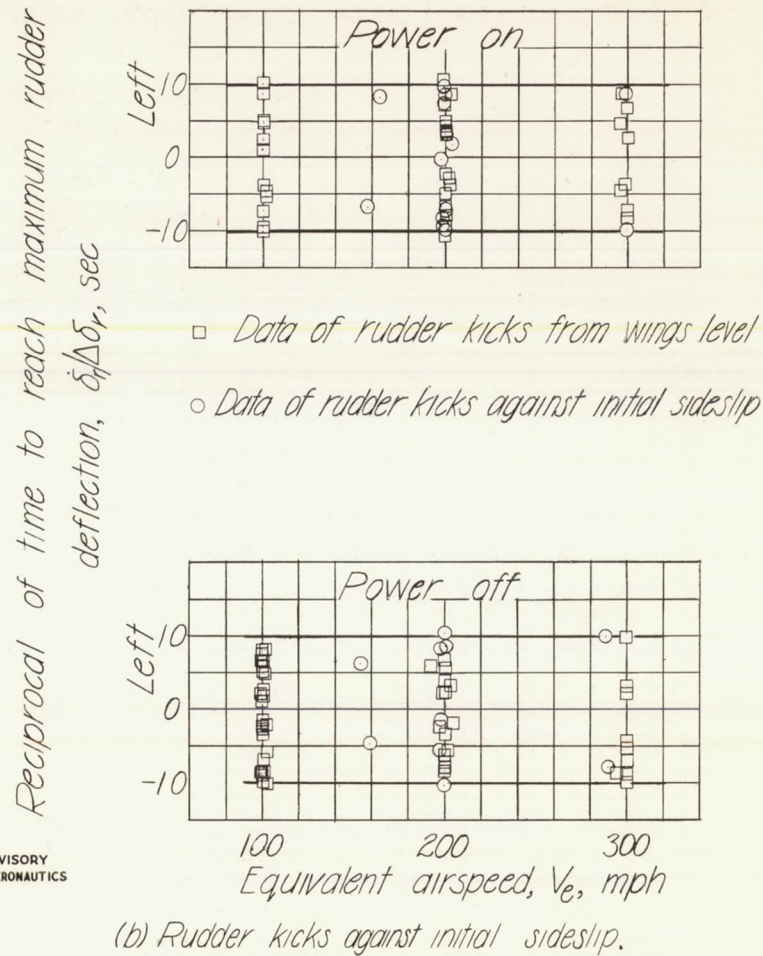 Reciprocal of time to reach maximum rudder
deflection, δ̇r/Δδr, sec
Power on
Left
10
0
-10
□ Data of rudder kicks from wings level
○ Data of rudder kicks against initial sideslip
Power off
Left
10
0
-10
100 200 300
Equivalent airspeed, Ve, mph
VISORY
ERONAUTICS
(b) Rudder kicks against initial sideslip.